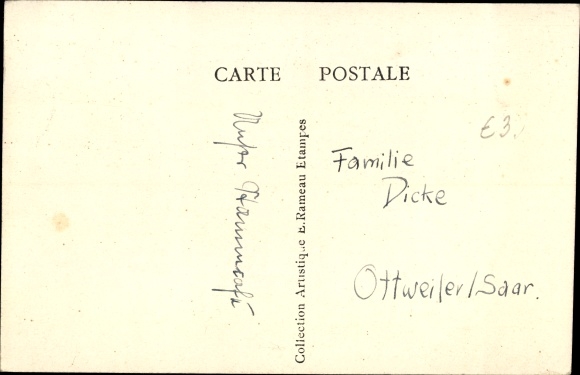 CARTE POSTALE
Unser Stammcafé
Collection Artistique E. Rameau Etampes
€3,
Familie
Dicke
Ottweiler/Saar.